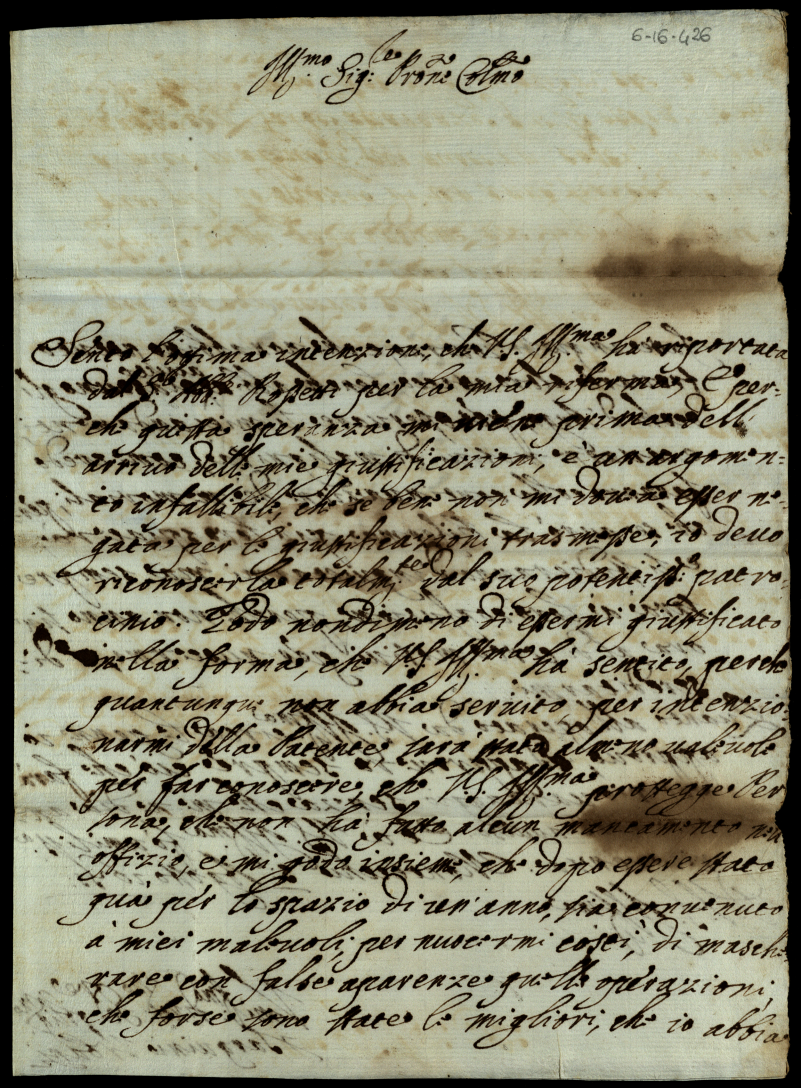 6-16-426
Ill.mo Sig.re Prone Colmo
Sento l'ottima intenzione, che V.S. Ill.ma hà riportata
dal S.r Abb.e Rossetti per la mia riferma, E per-
che questa speranza mi viene prima dell
arrivo delle mie giustificazioni, è un argomen-
to infallibile, che se bene non mi doveva esser ne-
gata per le giustificazioni trasmesse, io devo
riconoscerla totalm.te dal suo potentiss.o patro-
cinio. Godo nondimeno di essermi giustificato
nella forma, che V.S. Ill.ma hà sentito, perche
quantunque non abbia servito, per intenzio-
narmi della Patente, sarà stato almeno valevole
per far conoscere, che V.S. Ill.ma protegge Per
sona, che non hà fatto alcun mancamento nell
offizio, e mi godo insieme, che dopo essere stato
quà per lo spazio di un'anno, sia convenuto
à miei malevoli, per nuocermi costì, di masche-
rare con false aparenze quelle operazioni,
che forse sono state le migliori, che io abbia